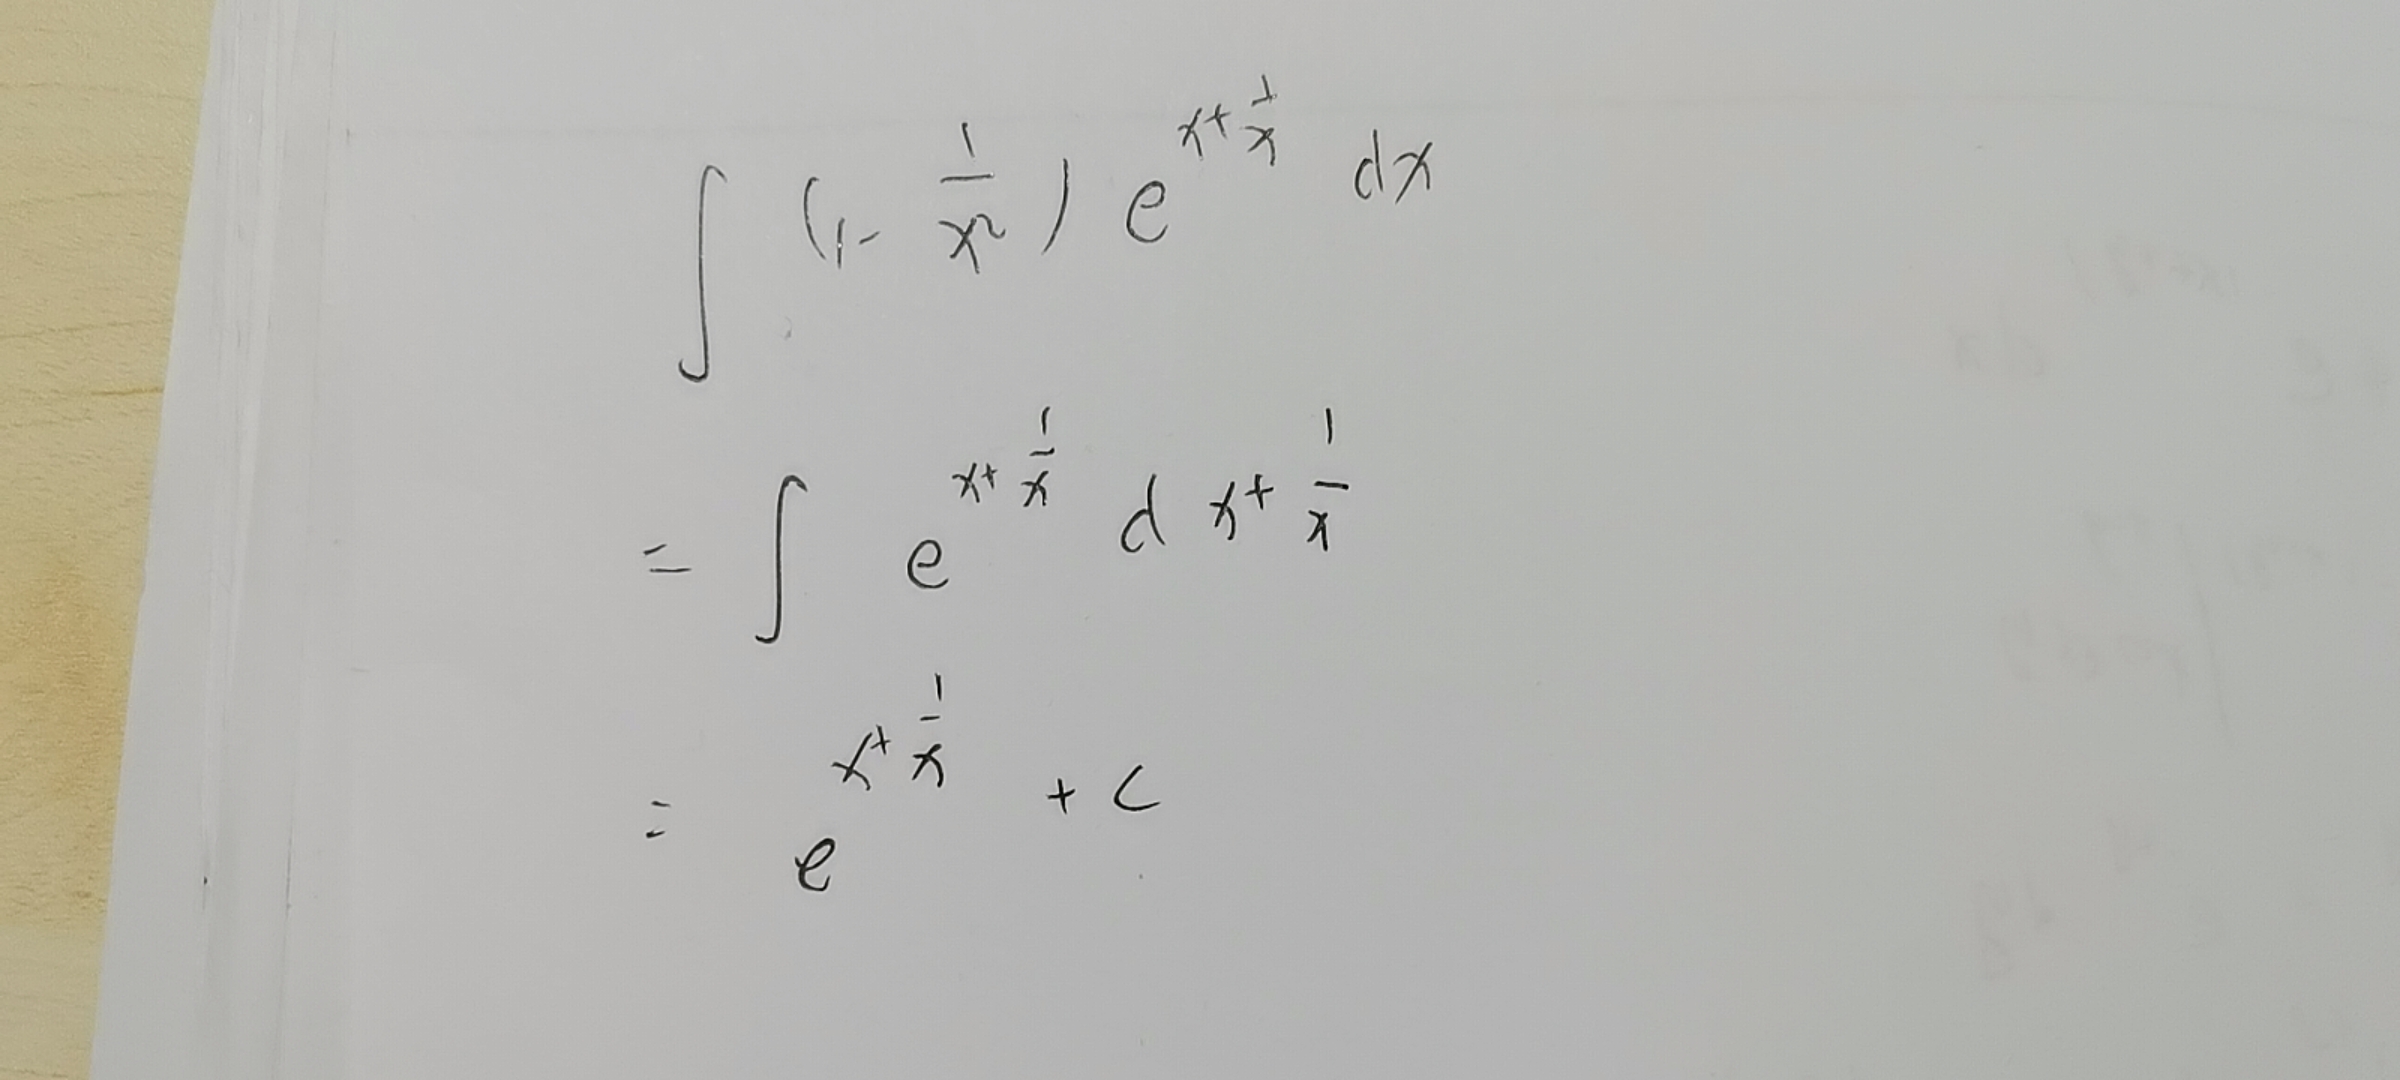 ∫ (1 - 1/x²) e^(x + 1/x) dx
= ∫ e^(x + 1/x) d x + 1/x
= e^(x + 1/x) + c